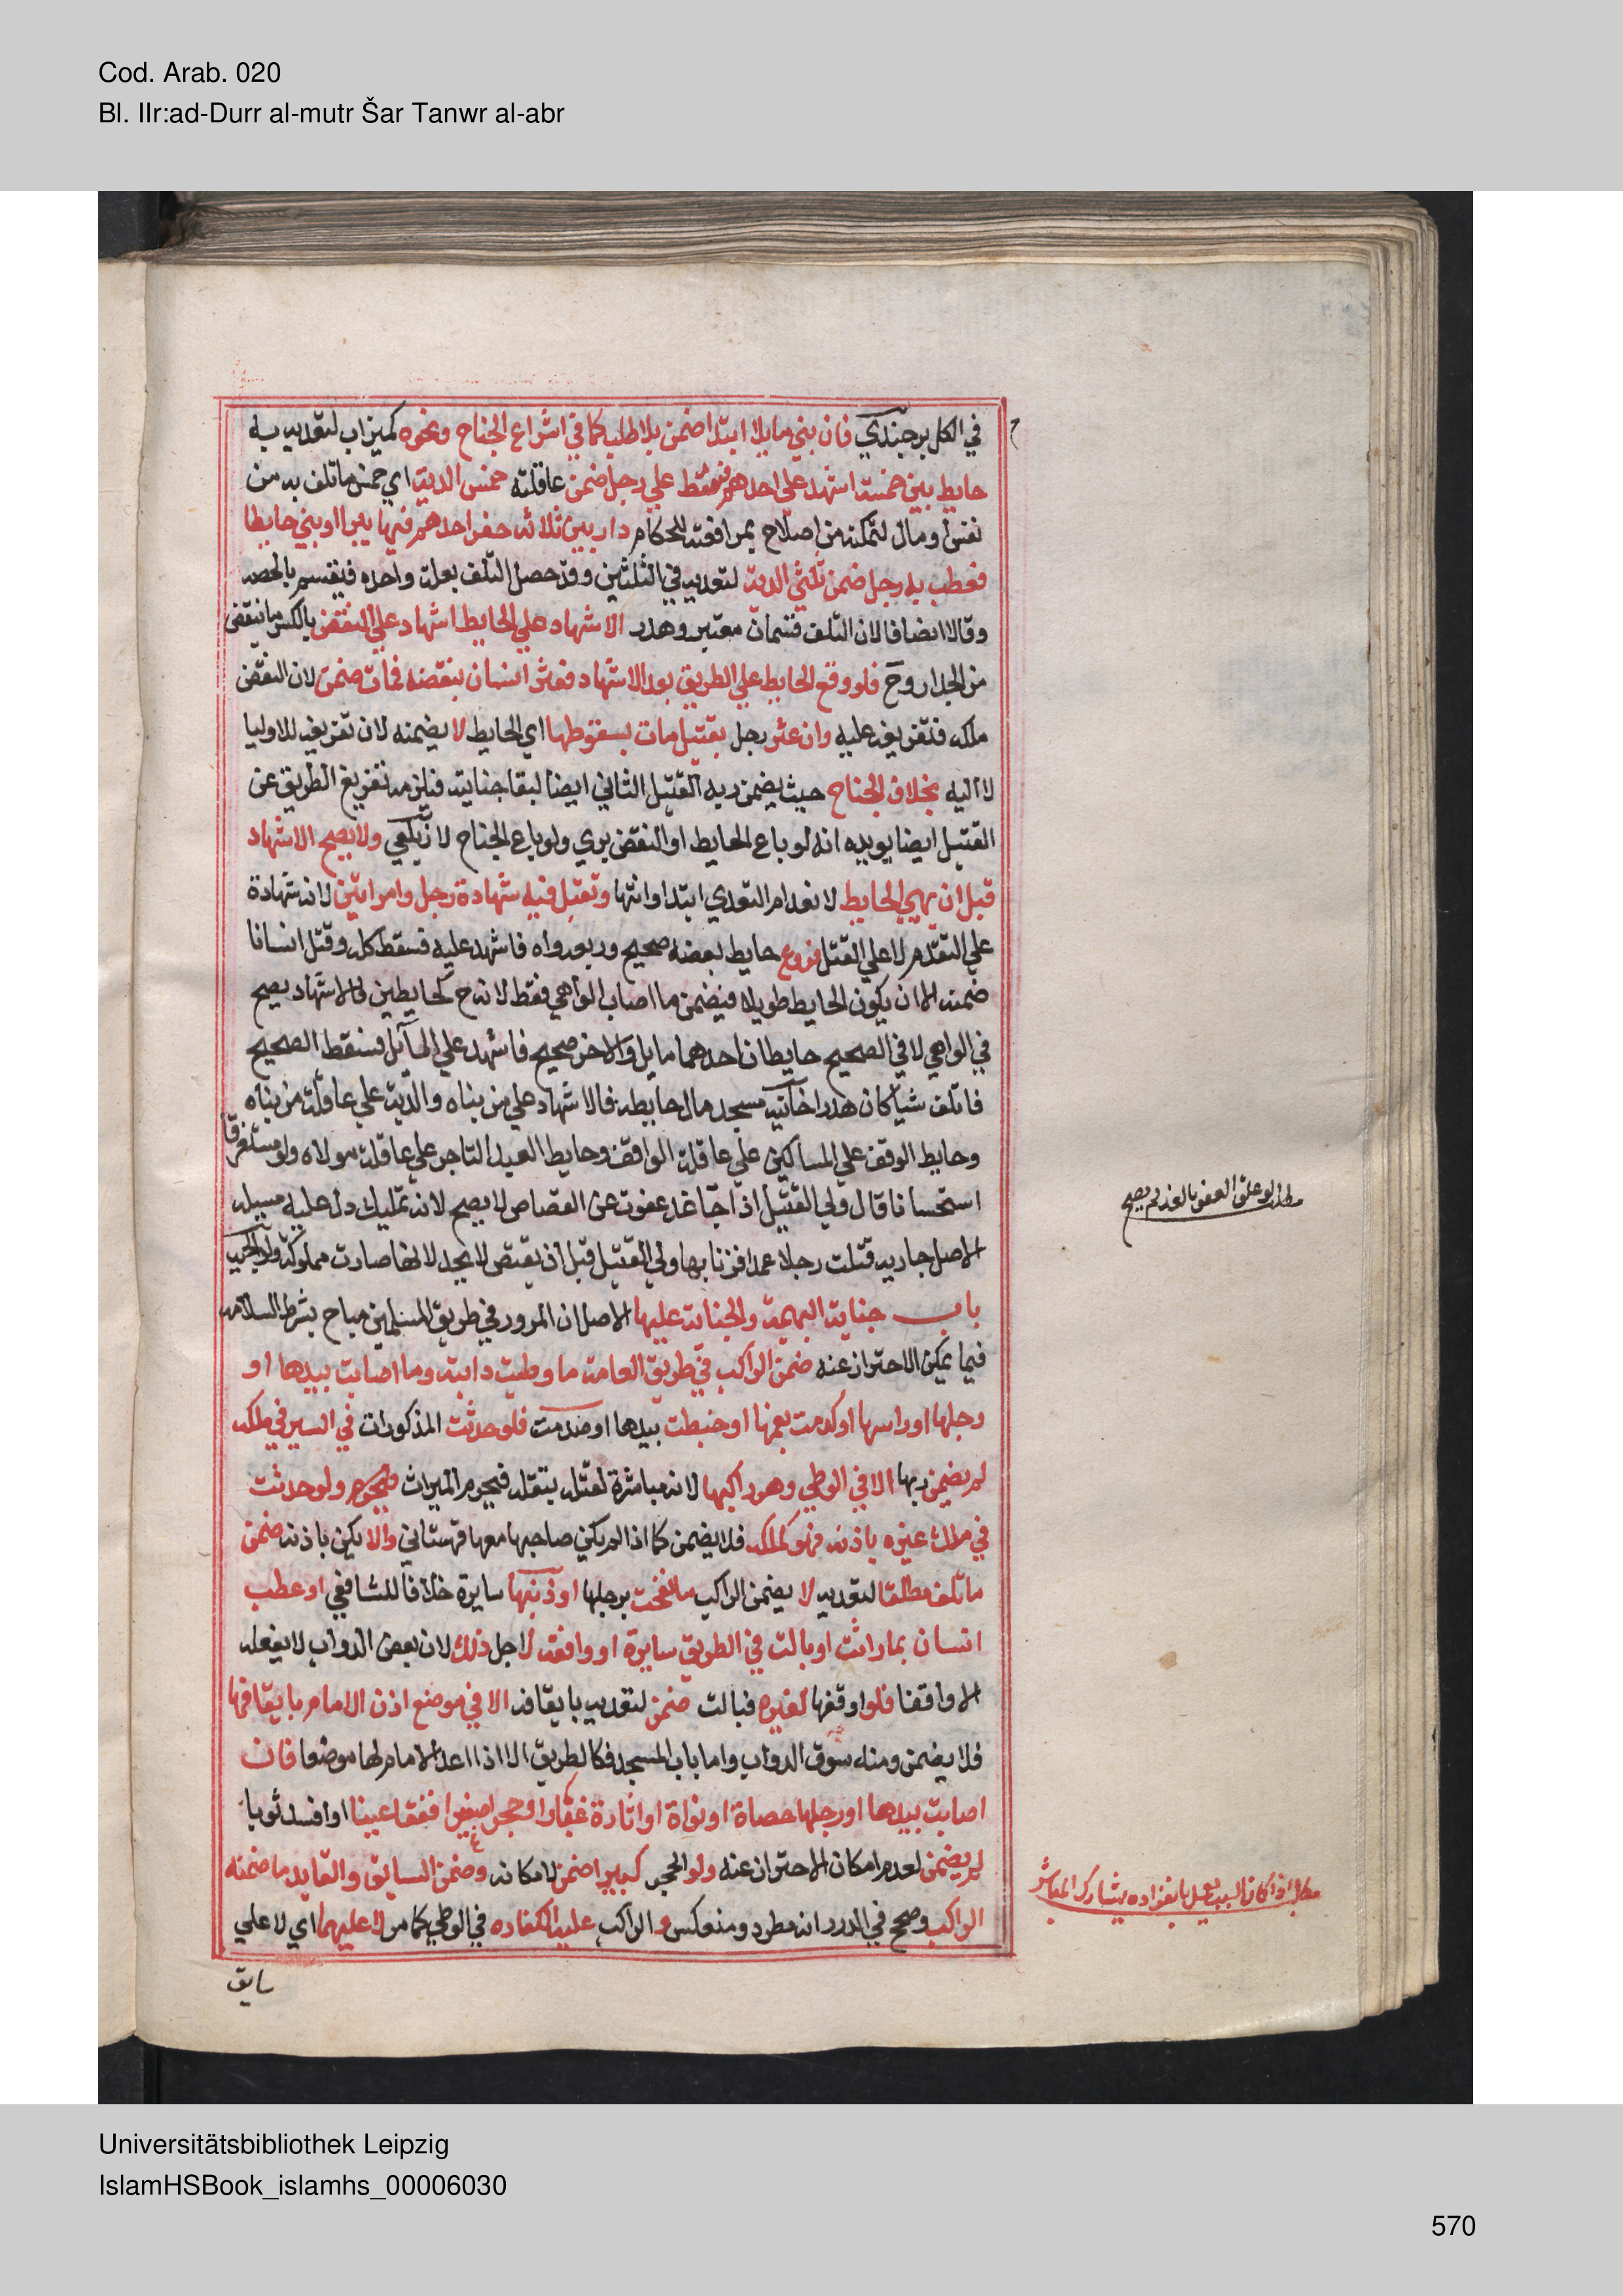 Cod. Arab. 020
Bl. IIr:ad-Durr al-mutr Šar Tanwr al-abr
في الكل برجندي فان بني مايلا ابتدا ضمن بلا طلب كما في اشراع الجناح ونحوه كميزاب لتعديه به
حايط بين خمسة اشهد علي احدهم فسقط علي رجل ضمن عاقلته خمس الدية اي خمس ما تلف به من
نفس ومال لتمكنه من اصلاح بمرافعته للحكام دار بين ثلاثه حفر احدهم فيها بيرا او بني حايطا
فعطب به رجل ضمن ثلثي الدية لتعديه في الثلثين وقد حصل التلف بعلة واحده فيقسم بالحصه
وقالا انصافا لان التلف قسمان معتبر وهدر الاشهاد علي الحايط اشهاد علي النقض بالكسر ما ينقض
من الجدار وح فلو وقع الحايط علي الطريق بعد الاشهاد فعثر انسان بنقضه فمات ضمن لان النقض
ملكه فتفريغه عليه وان عثر رجل بقتيل مات بسقوطها اي الحايط لا يضمنه لان تفريغه للاوليا
لا اليه بخلاف الجناح حيث يضمن ديه القتيل الثاني ايضا لبقا جنايته فيلزمه تفريغ الطريق عن
القتيل ايضا يويده انه لو باع الحايط او النقض بري ولو باع الجناح لا زيلعي ولا يصح الاشهاد
قبل ان يهي الحايط لانعدام التعدي ابتدا وانتها وتقبل فيه شهادة رجل وامراتين لانه شهادة
علي التقدم لا علي القتل فروع حايط بعضه صحيح وبعضه واه فاشهد عليه فسقط كله وقتل انسانا
ضمنه الا ان يكون الحايط طويلا فيضمن ما اصاب الواهي فقط لانه ح كحايطين فالاشهاد يصح
في الواهي لا في الصحيح حايطان احدهما مايل والاخر صحيح فاشهد علي المايل فسقط الصحيح
فاتلف شيا كان هدرا خانيه مسجد مال حايطه فالاشهاد علي من بناه والدية علي عاقلة من بناه
وحايط الوقف علي المساكين علي عاقلة الواقف وحايط العبد التاجر علي عاقلة مولاه ولو مستغرقا
استحسانا قال ولي القتيل اذا جا غد عفوت عن القصاص لا يصح لانه تمليك دل عليه مسيله
الاصل جاريه قتلت رجلا عمدا فزنا بها ولي القتيل قبل ان يقتص لا يحد لانها صارت مملوكة
باب جناية البهيمة والجناية عليها الاصل ان المرور في طريق المسلمين مباح بشرط السلامه
فيما يمكن الاحتراز عنه ضمن الراكب في طريق العامة ما وطيت دابته وما اصابت بيدها او
رجلها او راسها او كدمت بفمها او خبطت بيدها او صدمت فلو حدثت المذكورات في السير في ملكه
لم يضمن ربها الا في الوطي وهو راكبها لانه مباشرة لقتله بثقله فيحرم الميراث ولو حدثت
في ملك غيره باذنه فهو كملكه فلا يضمن كما اذا لم يكن صاحبها معها قهستاني والا يكن باذنه ضمن
ما تلف مطلقا لتعديه لا يضمن الراكب ما نفحت برجلها او ذنبها سايرة خلافا للشافعي او عطب
انسان بما راثت او بالت في الطريق سايرة او واقفة لاجل ذلك لان بعض الدواب لا يفعله
الا واقفا فلو اوقفها لغيره فبالت ضمن لتعديه بايقافه الا في موضع اذن الامام بايقافها
فلا يضمن ومنه سوق الدواب واما باب المسجد فكالطريق الا اذا اعد الامام لها موضعا فان
اصابت بيدها او رجلها حصاة او نواة او اثارة غبارا او حجرا صغيرا ففقا عينا او افسد ثوبا
لم يضمن لعدم امكان الاحتراز عنه ولو الحجر كبيرا ضمن لامكانه وضمن السايق والقايد ما ضمنه
الراكب وصحح في الدرر انه مطرد ومنعكس والراكب عليه الكفاره في الوطي كما مر لا عليهما اي لا علي
سايق
مطلب لو علق العفو بالغد لم يصح
مطلب اذا كان السبب يعمل بانفراده يشارك المباشر
Universitätsbibliothek Leipzig
IslamHSBook_islamhs_00006030
570